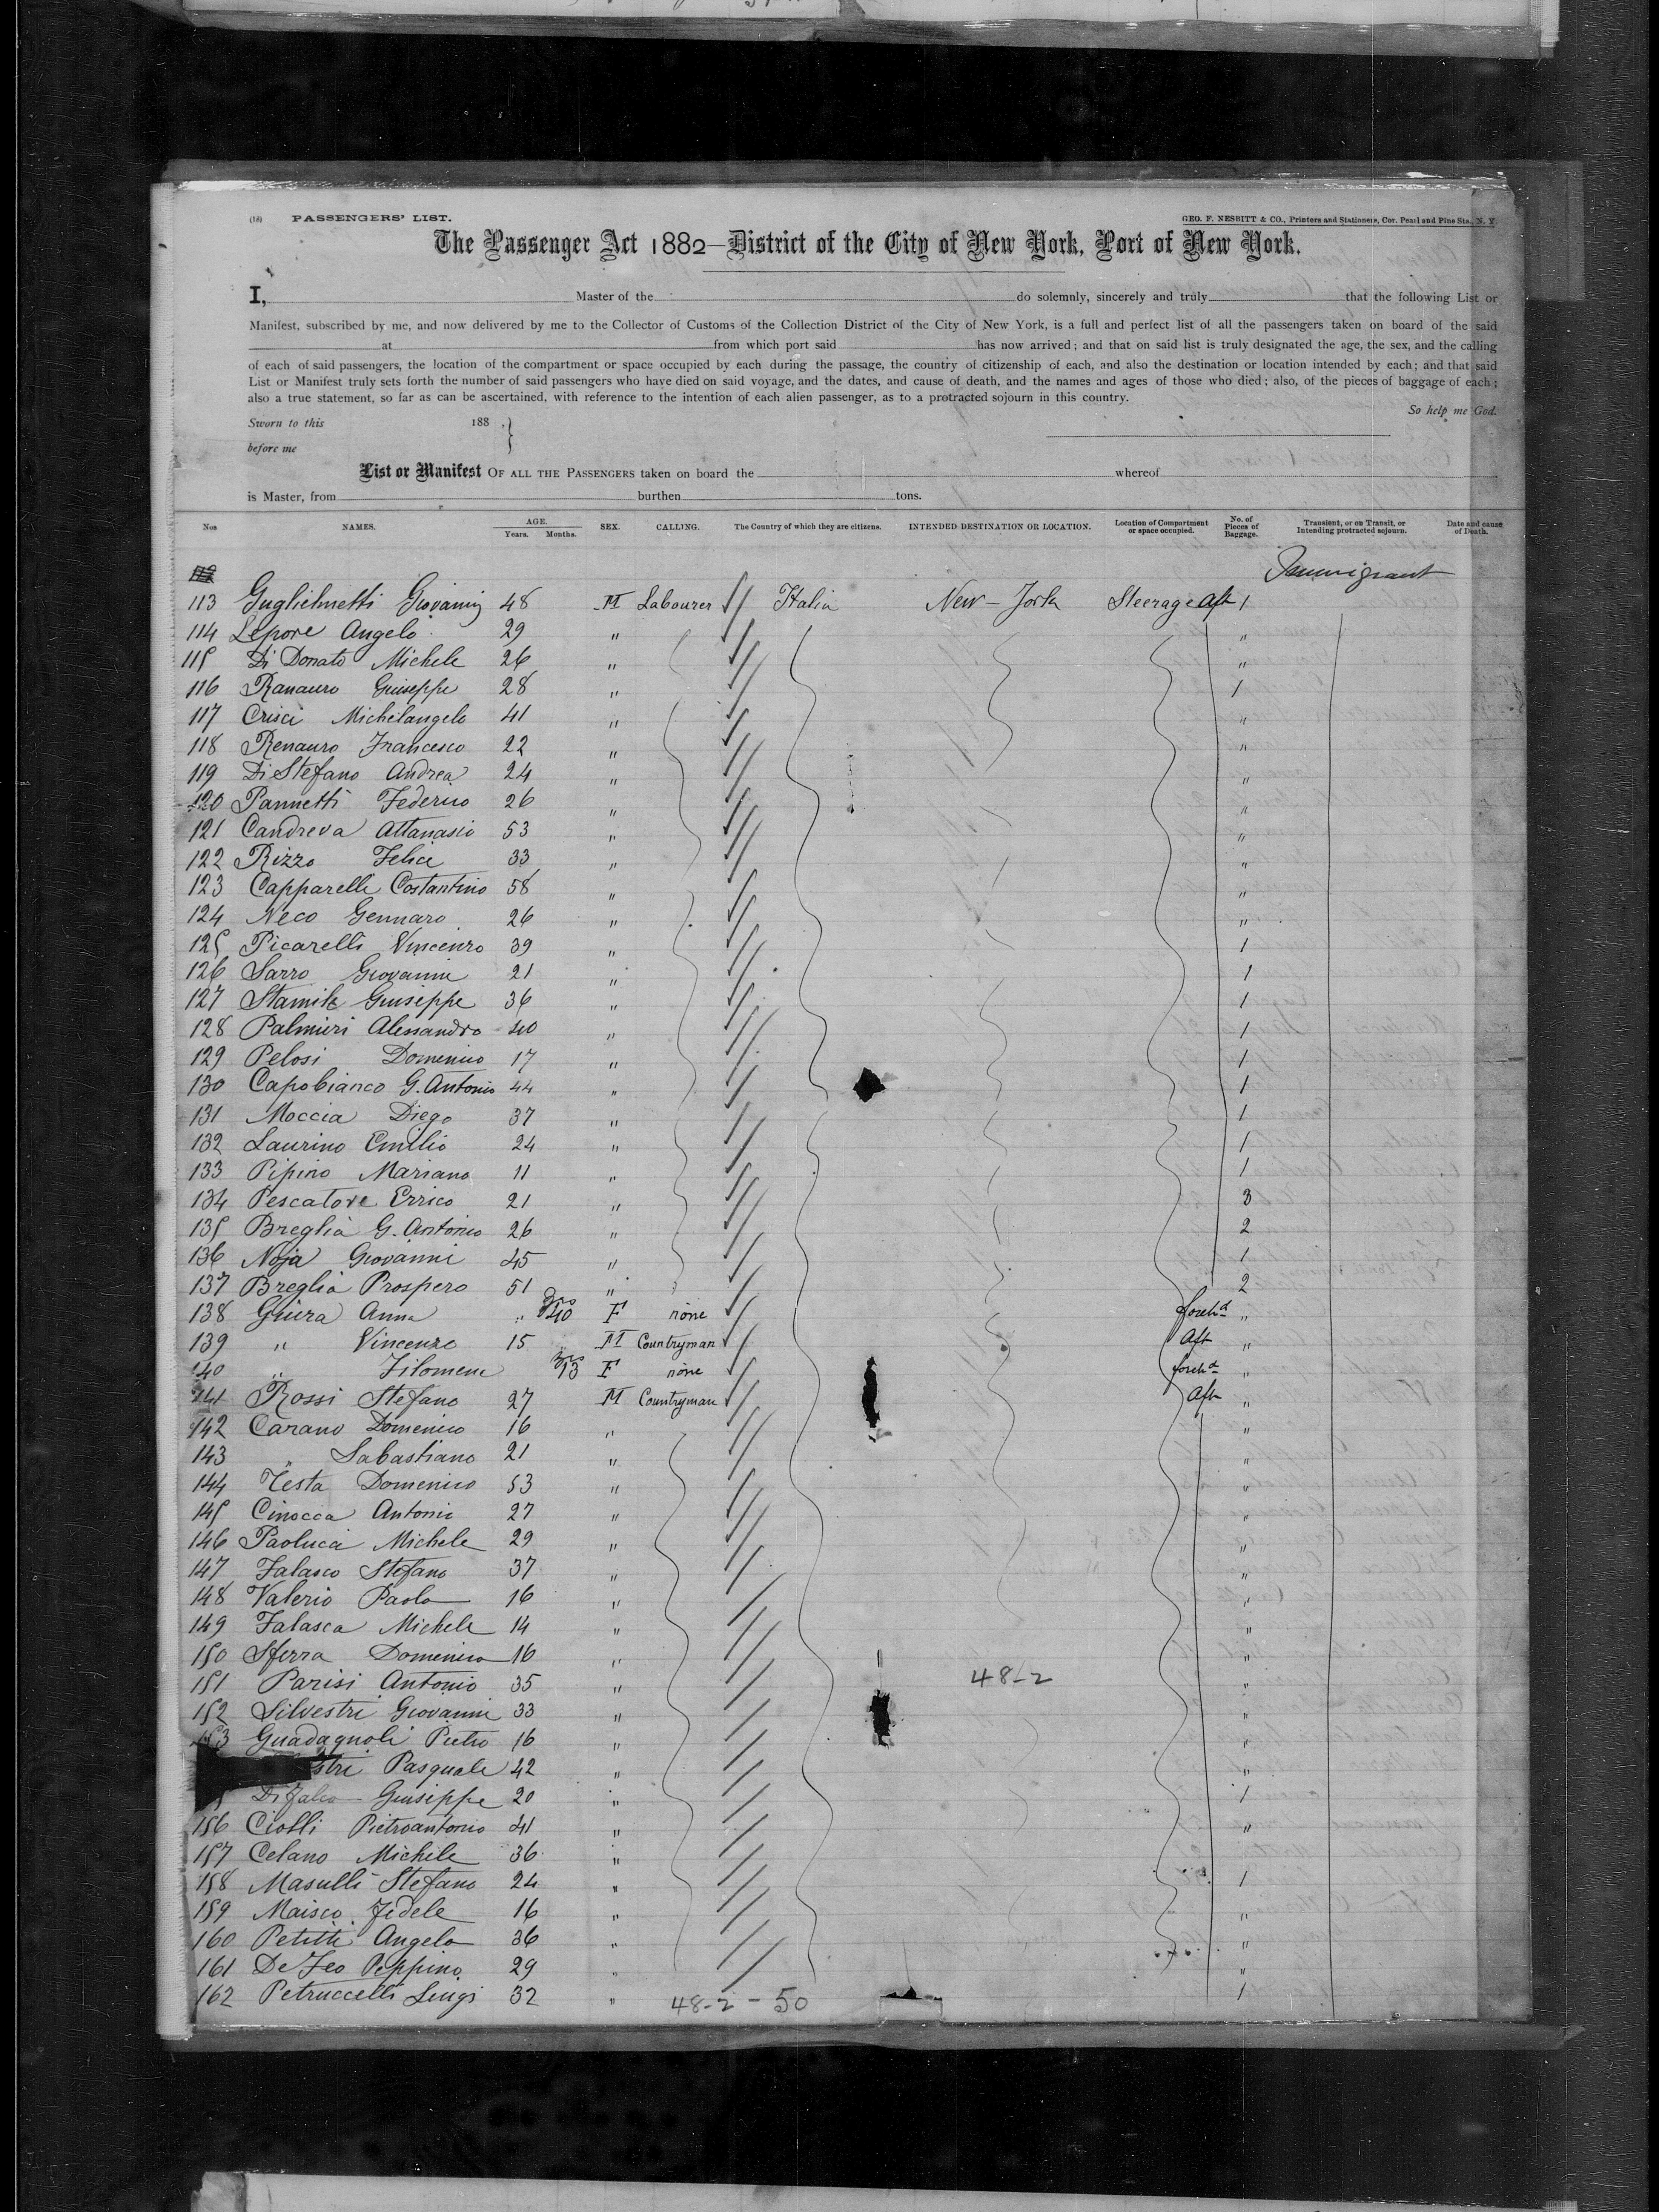 (18) PASSENGERS' LIST. GEO. F. NESBITT & CO., Printers and Stationers, Cor. Pearl and Pine Sts., N. Y.
The Passenger Act 1882—District of the City of New York, Port of New York.
I, Master of the do solemnly, sincerely and truly that the following List or
Manifest, subscribed by me, and now delivered by me to the Collector of Customs of the Collection District of the City of New York, is a full and perfect list of all the passengers taken on board of the said
at from which port said has now arrived; and that on said list is truly designated the age, the sex, and the calling
of each of said passengers, the location of the compartment or space occupied by each during the passage, the country of citizenship of each, and also the destination or location intended by each; and that said
List or Manifest truly sets forth the number of said passengers who have died on said voyage, and the dates, and cause of death, and the names and ages of those who died; also, of the pieces of baggage of each;
also a true statement, so far as can be ascertained, with reference to the intention of each alien passenger, as to a protracted sojourn in this country.
So help me God.
Sworn to this 188 .
before me
List or Manifest OF ALL THE PASSENGERS taken on board the whereof
is Master, from burthen tons.
Nos NAMES. AGE. Years. Months. SEX. CALLING. The Country of which they are citizens. INTENDED DESTINATION OR LOCATION. Location of Compartment or space occupied. No. of Pieces of Baggage. Transient, or on Transit, or Intending protracted sojourn. Date and cause of Death.
Immigrant
113 Guglielmetti Giovanni 48 M Labourer Italia New-York Steerage Aft 1
114 Lepore Angelo 29 " "
115 Di Donato Michele 26 " "
116 Ranauro Giuseppe 28 " 1
117 Crisci Michelangelo 41 " "
118 Renauro Francesco 22 " "
119 Di Stefano Andrea 24 " "
120 Pannetti Federico 26 " "
121 Candreva Attanasio 53 " "
122 Rizzo Felice 33 " "
123 Capparelli Costantino 58 " "
124 Neco Gennaro 26 " "
125 Picarelli Vincenzo 39 " 1
126 Sarro Giovanni 21 " 1
127 Stamile Giuseppe 36 " 1
128 Palmieri Alessandro 40 " 1
129 Pelosi Domenico 17 " 1
130 Capobianco G. Antonio 44 " 1
131 Moccia Diego 37 " 1
132 Laurino Emilio 24 " 1
133 Pipino Mariano 11 " 1
134 Pescatore Errico 21 " 3
135 Breglia G. Antonio 26 " 2
136 Noja Giovanni 45 " 1
137 Breglia Prospero 51 " 2
138 Giura Anna " 40 F none forehd "
139 " Vincenzo 15 M Countryman Aft "
140 " Filomena 13 F none forehd "
141 Rossi Stefano 27 M Countryman Aft "
142 Carano Domenico 16 " "
143 " Sabastiano 21 " "
144 Testa Domenico 53 " "
145 Cinocca Antonio 27 " "
146 Paolucci Michele 29 " "
147 Falasco Stefano 37 " "
148 Valerio Paolo 16 " "
149 Falasca Michele 14 " "
150 Sferra Domenico 16 " "
151 Parisi Antonio 35 " 48-2 "
152 Silvestri Giovanni 33 " "
153 Guadagnoli Pietro 16 " "
stri Pasquale 42 " "
5 Di Falco Giuseppe 20 " 1
156 Ciolli Pietroantonio 41 " "
157 Celano Michele 36 " "
158 Masulli Stefano 24 " 1
159 Maisco Fidele 16 " "
160 Petitti Angelo 36 " "
161 De Feo Peppino 29 " "
162 Petruccelli Luigi 32 " 1
48-2-50